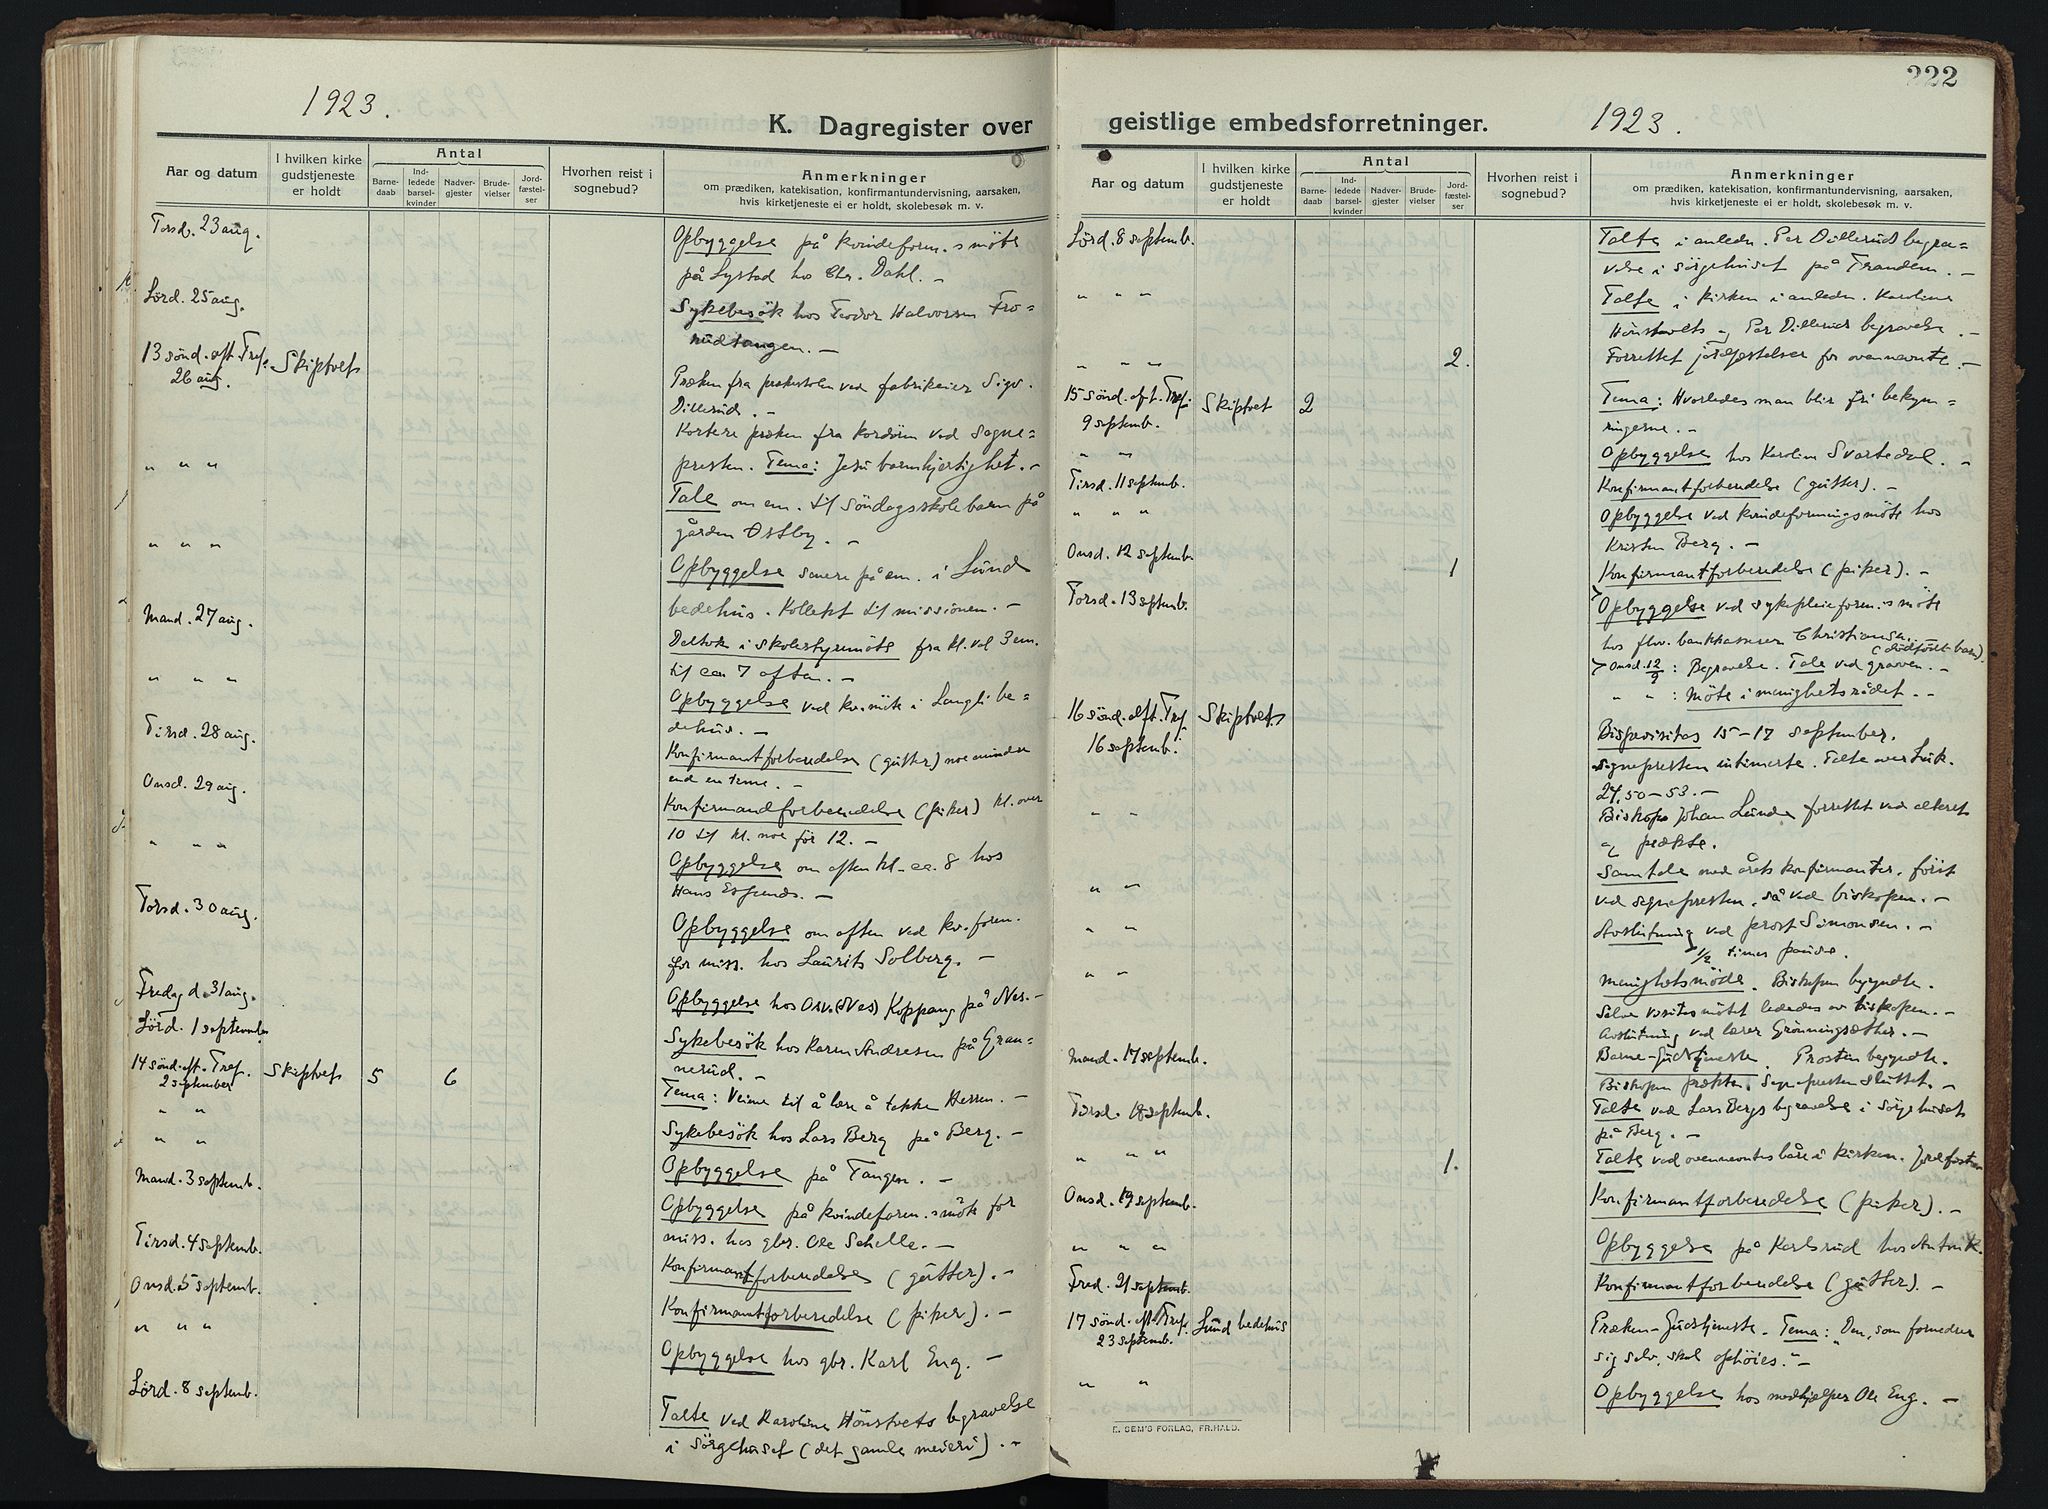 1923.
K. Dagregister over
Aar og datum
I hvilken kirke gudstjeneste er holdt
Antal
Barnedaab
Indledede barselkvinder
Nadvergjester
Brudevielser
Jordfæstelser
Hvorhen reist i sognebud?
Anmerkninger
om prædiken, katekisation, konfirmantundervisning, aarsaken,
hvis kirketjeneste ei er holdt, skolebesøk m. v.
Torsd. 23 aug.
Opbyggelse på kvindeforen.s møte
på Lystad hos Chr. Dahl. –
Lørd. 25 aug.
Sykebesøk hos Teodor Halvorsen Fro=
rudtangen. –
13 sønd. eft. Tref. Skiptvet
26 aug.
Præken fra prækestolen ved fabrikeier Sigv.
Dillerud. –
Kortere præken fra kordøren ved sogne=
" " "
presten. Tema: Jesu barmhjertighet. –
Tale om em. til søndagsskolebarn på
gården Østby. –
" " "
Opbyggelse senere på em. i Lund
bedehus. Kollekt til missionen. –
Mand. 27 aug.
Deltok i skolestyremøte fra kl. vel 3 em.
til ca 7 aften. –
" " "
Opbyggelse ved kv.møte i Langli be=
dehus. –
Tirsd. 28 aug.
Konfirmantforberedelse (gutter) noe mindre
end en time. –
Onsd. 29 aug.
Konfirmandforberedelse (piker) kl. over
10 til kl. noe før 12. –
" " "
Opbyggelse om aften kl. ca. 8 hos
Hans –
Torsd. 30 aug.
Opbyggelse om aften ved kv.foren.
for miss. hos Laurits Solberg. –
Fredag d. 31 aug.
Opbyggelse hos Osv. (Nes) Koppang på Nes. –
Lørd. 1 september
Sykebesøk hos Karen Andresen på Gran=
nerud. –
14 sønd. eft. Tref. Skiptvet 5 6
2 september
Tema: Veiene til å lære å takke Herren. –
" "
Sykebesøk hos Lars Berg på Berg. –
" "
Opbyggelse på Tangen. –
Mand. 3 septemb.
Opbyggelse på kvindeforen.s møte for
miss. hos gbr. Ole Schelle. –
Tirsd. 4 septemb.
Konfirmantforberedelse (gutter). –
Onsd. 5 septemb.
Konfirmantforberedelse (piker). –
" " "
Opbyggelse hos gbr. Karl Eng. –
Lørd. 8 septemb.
Talte ved Karoline Hønstvets begravelse
i sørgehuset (det gamle meieri). –
222
geistlige embedsforretninger.
1923.
Aar og datum
I hvilken kirke gudstjeneste er holdt
Antal
Barnedaab
Indledede barselkvinder
Nadvergjester
Brudevielser
Jordfæstelser
Hvorhen reist i sognebud?
Anmerkninger
om prædiken, katekisation, konfirmantundervisning, aarsaken,
hvis kirketjeneste ei er holdt, skolebesøk m. v.
Lørd. 8 septemb.
Talte i anledn. Per Dillerud begra=
velse i sørgehuset på Frandem. –
" " "
Talte i kirken i anledn. Karoline
Hønstvets og Per Dilleruds begravelse. –
" " " 2.
Forrettet jordfestelser for ovennevnte. –
15 sønd. eft. Tref. Skiptvet 2
9 septemb.
Tema: Hvorledes man blir fri bekym=
ringerne. –
" "
Opbyggelse hos Karoline Svartedal. –
Tirsd. 11 septemb.
Konfirmantforberedelse (gutter). –
" " "
Opbyggelse ved kvindeforeningsmøte hos
Kristen Berg. –
Onsd. 12 septemb. 1
Konfirmantforberedelse (piker). –
Torsd. 13 septemb.
Opbyggelse ved sykepleieforen.s møte
hos fhv. bankkasserer Christiansen.
(dødfødt barn).
Onsd. 12/9: Begravelse. Tale ved graven. –
" " : Møte i menighetsrådet. –
16 sønd. eft. Tref. Skiptvet
16 septemb.
Bispevisitas 15–17 september.
Sognepresten intimerte. Talte over Luk.
24,50–53. –
" "
Biskop Johan Lunde forrettet ved alteret
og prækte.
" "
Samtale med årets konfirmanter, først
ved sognepresten, så ved biskopen. –
" "
Avslutning ved prost Simonsen. –
1/2 times pause.
" "
Menighetsmøte. Biskopen begyndte.
Selve visitasmøtet lededes av biskopen. –
Avslutning ved lærer Grønningsæther. –
Mand. 17 septemb.
Barne-Gudstjeneste. Prosten begyndte.
Biskopen prækte. Sognepresten sluttet. –
Tirsd. 18 septemb.
Talte ved Lars Bergs begravelse i sørgehuset
på Berg. –
" " " 1.
Talte ved ovennevntes båre i kirken. Jordfestem
Onsd. 19 septemb.
Konfirmantforberedelse (piker). –
" " "
Opbyggelse på Karlsrud hos
Fred. 21 septemb.
Konfirmantforberedelse (gutter). –
17 sønd. eft. Tref. Lund bedehus
23 septemb.
Præken-Gudstjeneste. Tema: "Den, som fornedrer
sig selv, skal ophøies." –
" "
Opbyggelse hos medhjelper Ole Eng. –
E. SEM'S FORLAG, FR.HALD.